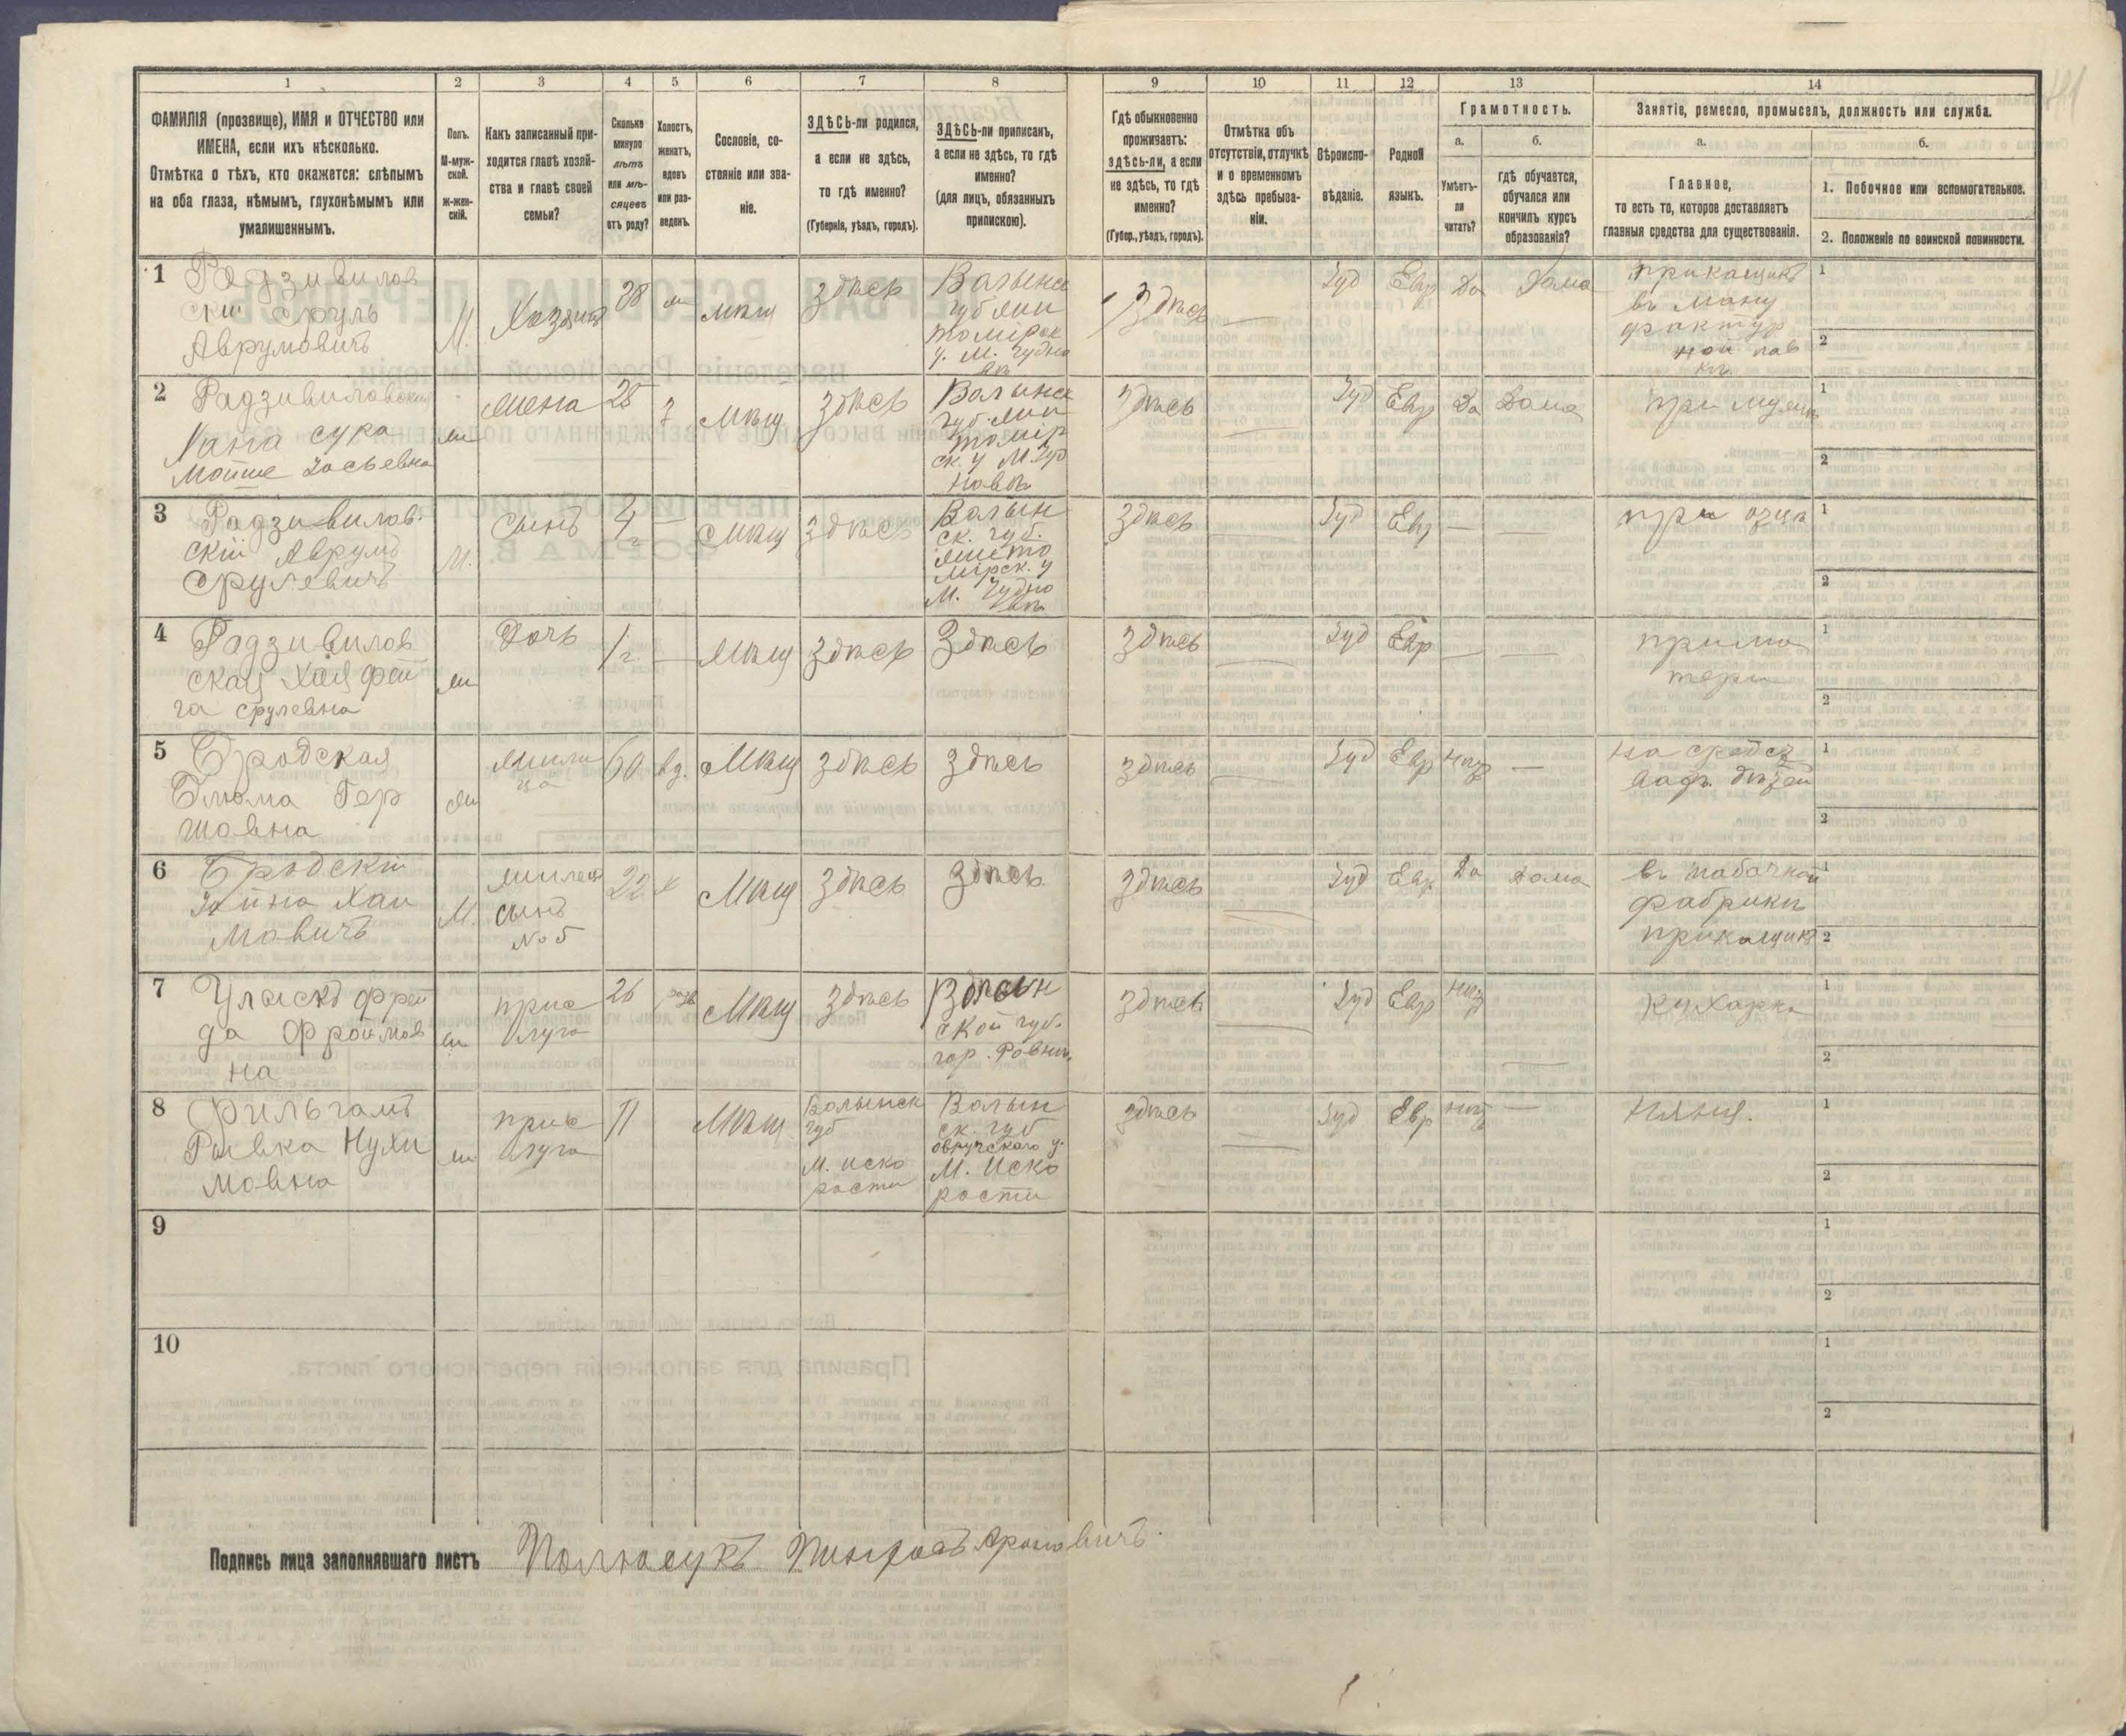 1 2 3 4 5 6 7 8 9 10 11 12 13 14
ФАМИЛІЯ (прозвище), ИМЯ и ОТЧЕСТВО или
ИМЕНА, если ихъ нѣсколько.
Отмѣтка о тѣхъ, кто окажется: слѣпымъ
на оба глаза, нѣмымъ, глухонѣмымъ или
умалишеннымъ.
Полъ.
М-муж-
ской.
ж-жен-
скій.
Какъ записанный при-
ходится главѣ хозяй-
ства и главѣ своей
семьи?
Сколько
минуло
лѣтъ
или мѣ-
сяцевъ
отъ роду?
Холостъ,
женатъ,
вдовъ
или раз-
веденъ.
Сословіе, со-
стояніе или зва-
ніе.
ЗДѢСЬ-ли родился,
а если не здѣсь,
то гдѣ именно?
(Губернія, уѣздъ, городъ).
ЗДѢСЬ-ли приписанъ,
а если не здѣсь, то гдѣ
именно?
(для лицъ, обязанныхъ
припискою).
Гдѣ обыкновенно
проживаетъ:
здѣсь-ли, а если
не здѣсь, то гдѣ
именно?
(Губер., уѣздъ, городъ).
Отмѣтка объ
отсутствіи, отлучкѣ
и о временномъ
здѣсь пребыва-
ніи.
Вѣроиспо-
вѣданіе.
Родной
языкъ.
Грамотность.
а.
Умѣетъ-
ли
читать?
б.
гдѣ обучается,
обучался или
кончилъ курсъ
образованія?
Занятіе, ремесло, промыселъ, должность или служба.
а.
Главное,
то есть то, которое доставляетъ
главныя средства для существованія.
б.
1. Побочное или вспомогательное.
2. Положеніе по воинской повинности.
1 Радзивилов
скій Сруль
Аврумовичъ
М.
Хозяинъ
28
ж
мѣщ
Здѣсь
Волынск
губ Жи
томірск
у. М. Чудно
вѣ
Здѣсь
Іуд
Евр
Да
Дома
прикащикъ
въ ману
фактур
ной лав
кѣ.
1
2
2 Радзивиловская
Хана Сура
Мойше Іосьевна
ж
Жена
25
З
мѣщ
Здѣсь
Волынск
губ. Жи
томір
ск. у М. Чуд
новѣ
Здѣсь
Іуд
Евр
Да
Дома
при мужѣ
1
2
3 Радзивилов.
скій Аврумъ
Срулевичъ
М.
Сынъ
4 г
мѣщ
Здѣсь
Волын
ск. губ.
Жито
мірск. у
М. Чудно
вѣ
Здѣсь
Іуд
Евр
при отцѣ
1
2
4 Радзивилов
ская Хая Фей
га Срулевна
ж
Дочь
1 г
мѣщ
Здѣсь
Здѣсь
Здѣсь
Іуд
Евр
при ма
тери
1
2
5 Бродская
Блюма Гер
шовна
ж
Жили
ца
60
вд.
мѣщ
Здѣсь
Здѣсь
Здѣсь
Іуд
Евр
нѣт
на средст
вахъ дѣтей
1
2
6 Бродскій
Хаи
мовичъ
М.
жилецъ
сынъ
№ 5
22
х
мѣщ
Здѣсь
Здѣсь
Здѣсь
Іуд
Евр
Да
Дома
въ табачной
фабрики
прикащикъ
1
2
7 Фрей
да Фроймов
на
ж
прис
луга
26
мѣщ
Здѣсь
Волын
ской губ.
гор. Ровны.
Здѣсь
Іуд
Евр
нѣт
Кухарка
1
2
8
Рывка Нухи
мовна
ж
прис
луга
11
мѣщ
Волынск
губ
М. Иско
рости
Волын
ск. губ
Овручскаго у.
М. Иско
рости
Здѣсь
Іуд
Евр
нѣт
Няня.
1
2
9
1
2
10
1
2
Подпись лица заполнявшаго листъ